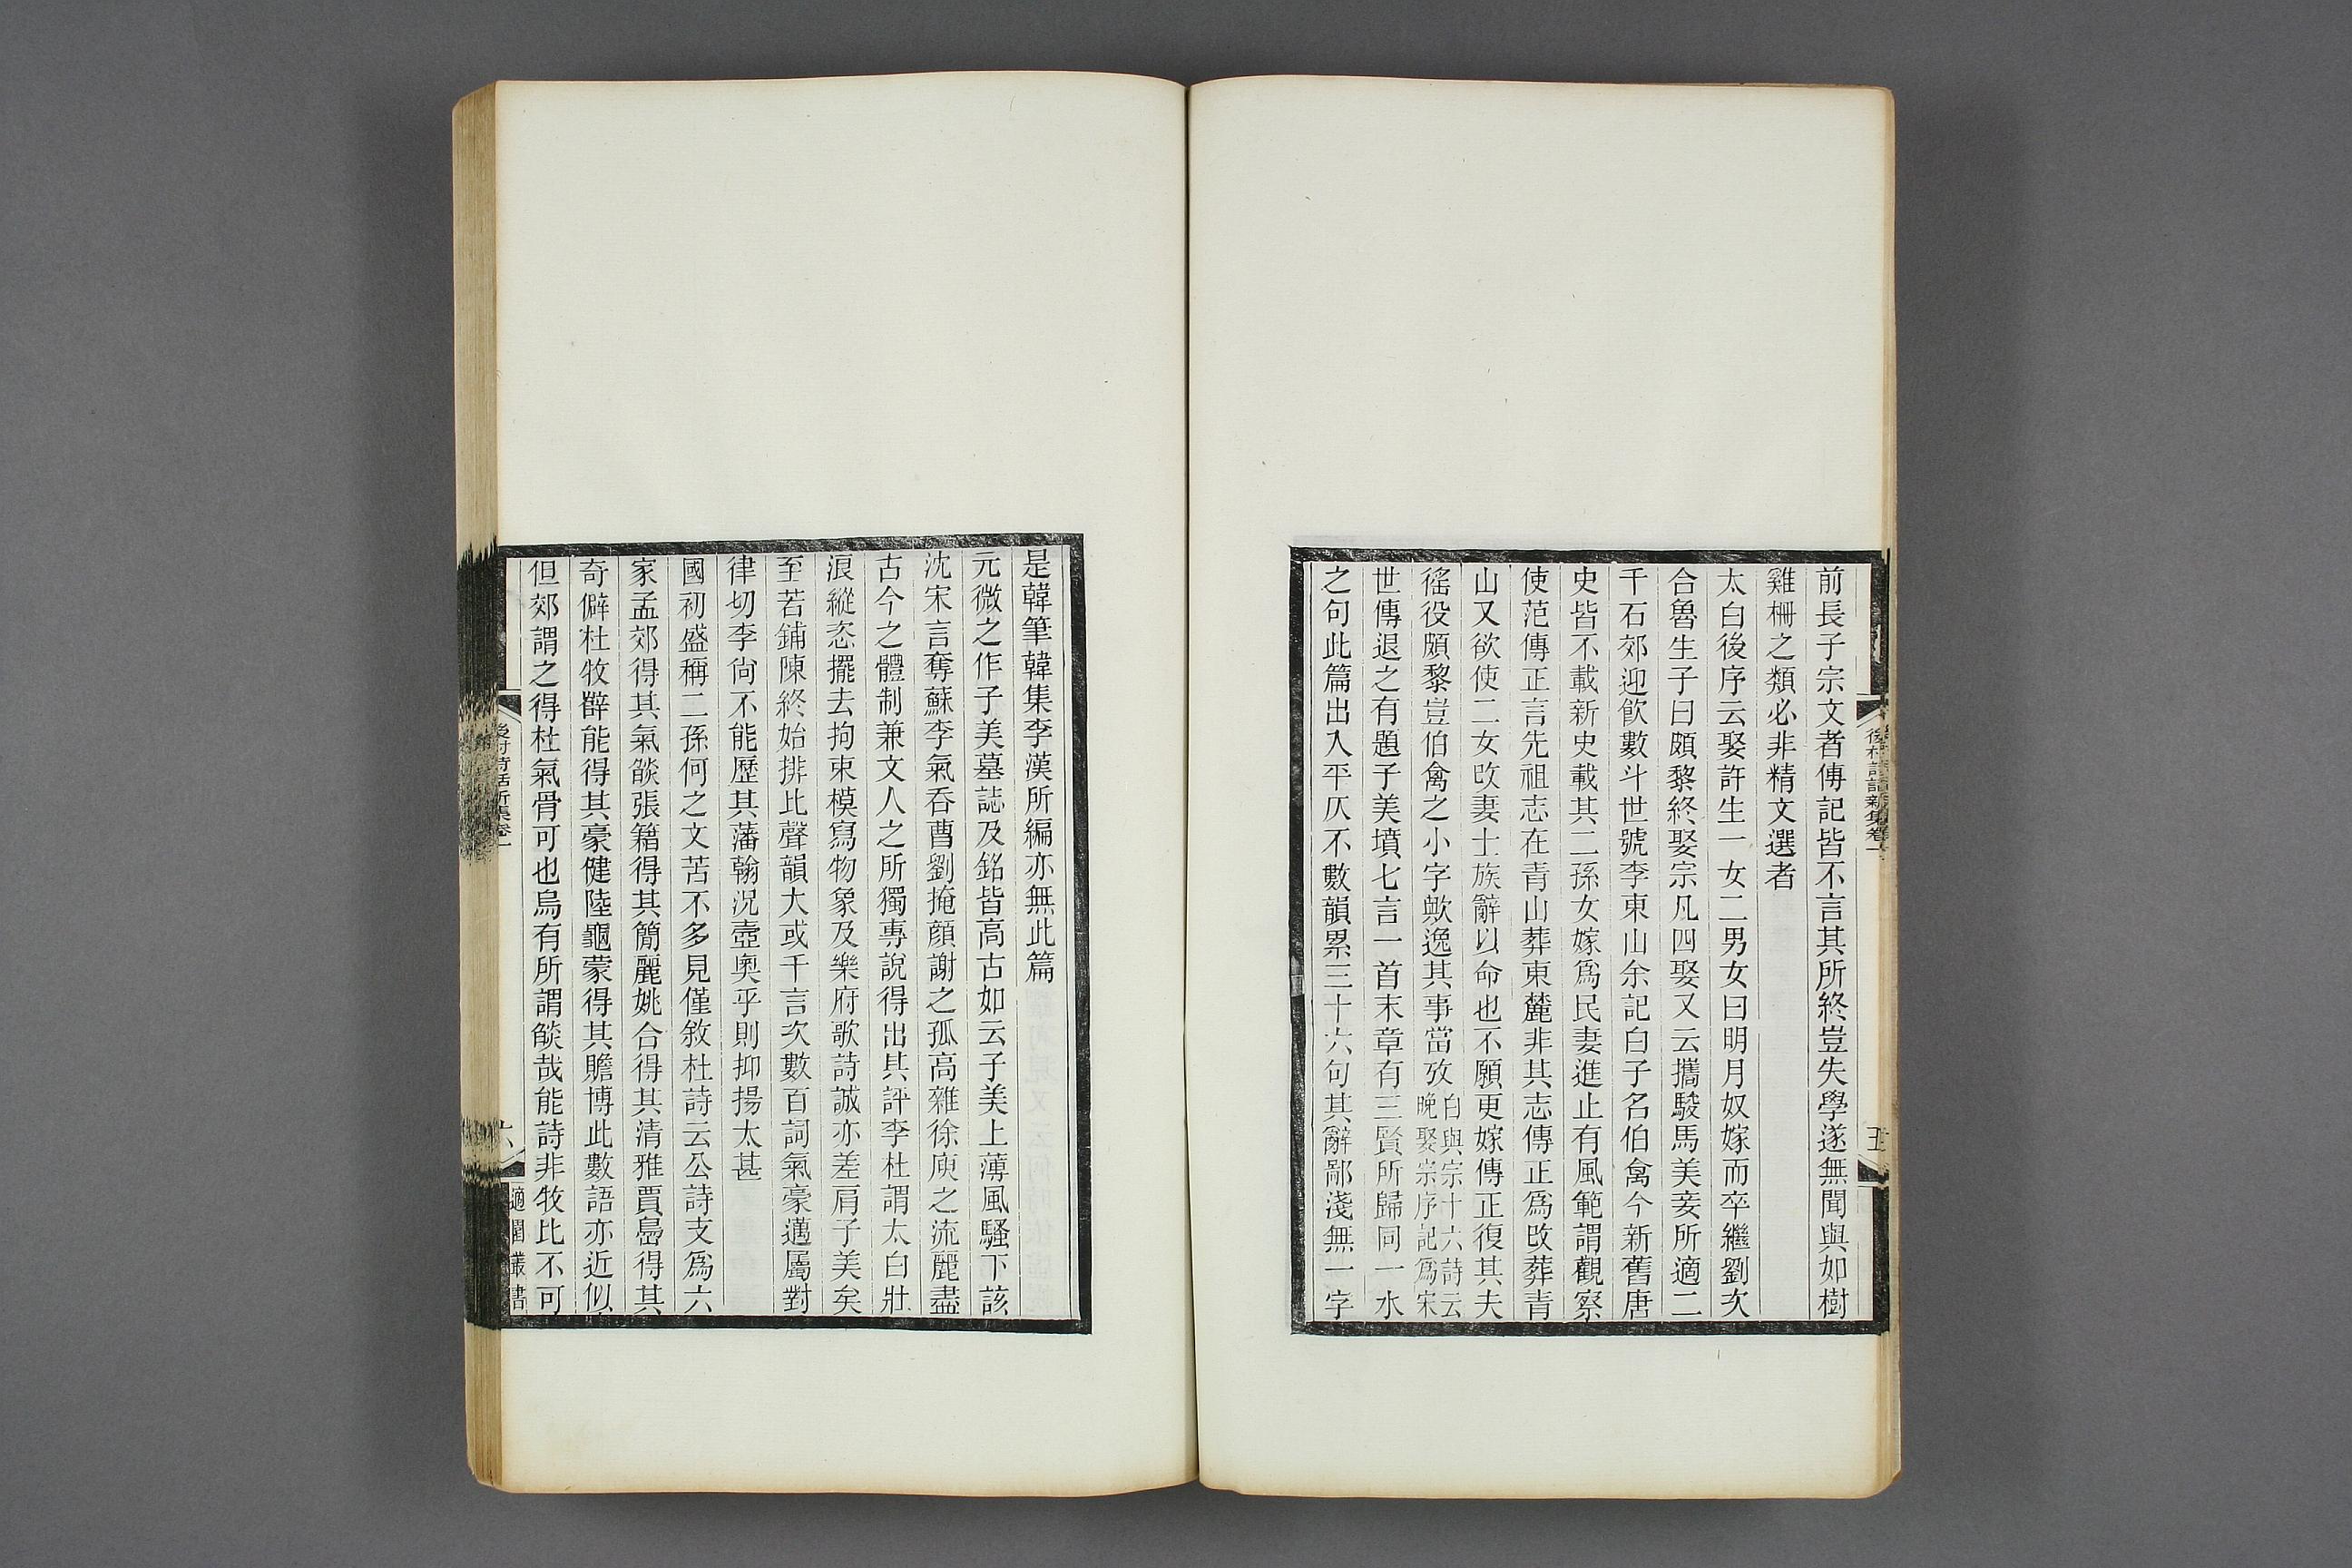 前長子宗文者傳記皆不言其所終豈失學遂無聞與如樹
雞柵之類必非精文選者
太白後序云娶許生一女二男女曰明月奴嫁而卒繼劉次
合魯生子曰頗黎終娶宗凡四娶又云攜駿馬美妾所適二
千石郊迎飮數斗世號李東山余記白子名伯禽今新舊唐
史皆不載新史載其二孫女嫁爲民妻進止有風範謂觀察
使范傳正言先祖志在青山葬東麓非其志傳正爲改葬青
山又欲使二女改妻士族辭以命也不願更嫁傳正復其夫
徭役頗黎豈伯禽之小字歟逸其事當攷白與宗十六詩云
晚娶宗序記爲宋
世傳退之有題子美墳七言一首末章有三賢所歸同一水
之句此篇出入平仄不數韻累三十六句其辭鄙淺無一字
後村詩話新集卷一
五
是韓筆韓集李漢所編亦無此篇
元微之作子美墓誌及銘皆高古如云子美上薄風騷下該
沈宋言奪蘇李氣呑曹劉掩顔謝之孤高雜徐庾之流麗盡
古今之體制兼文人之所獨專說得出其評李杜謂太白壯
浪縱恣擺去拘束模寫物象及樂府歌詩誠亦差肩子美矣
至若鋪陳終始排比聲韻大或千言次數百詞氣豪邁屬對
律切李尙不能歷其藩翰况壼奥乎則抑揚太甚
國初盛稱二孫何之文苦不多見僅敘杜詩云公詩支爲六
家孟郊得其氣燄張籍得其簡麗姚合得其清雅賈島得其
奇僻杜牧薛能得其豪健陸龜蒙得其贍博此數語亦近似
但郊謂之得杜氣骨可也烏有所謂燄哉能詩非牧比不可
後村詩話新集卷一
六
適園叢書